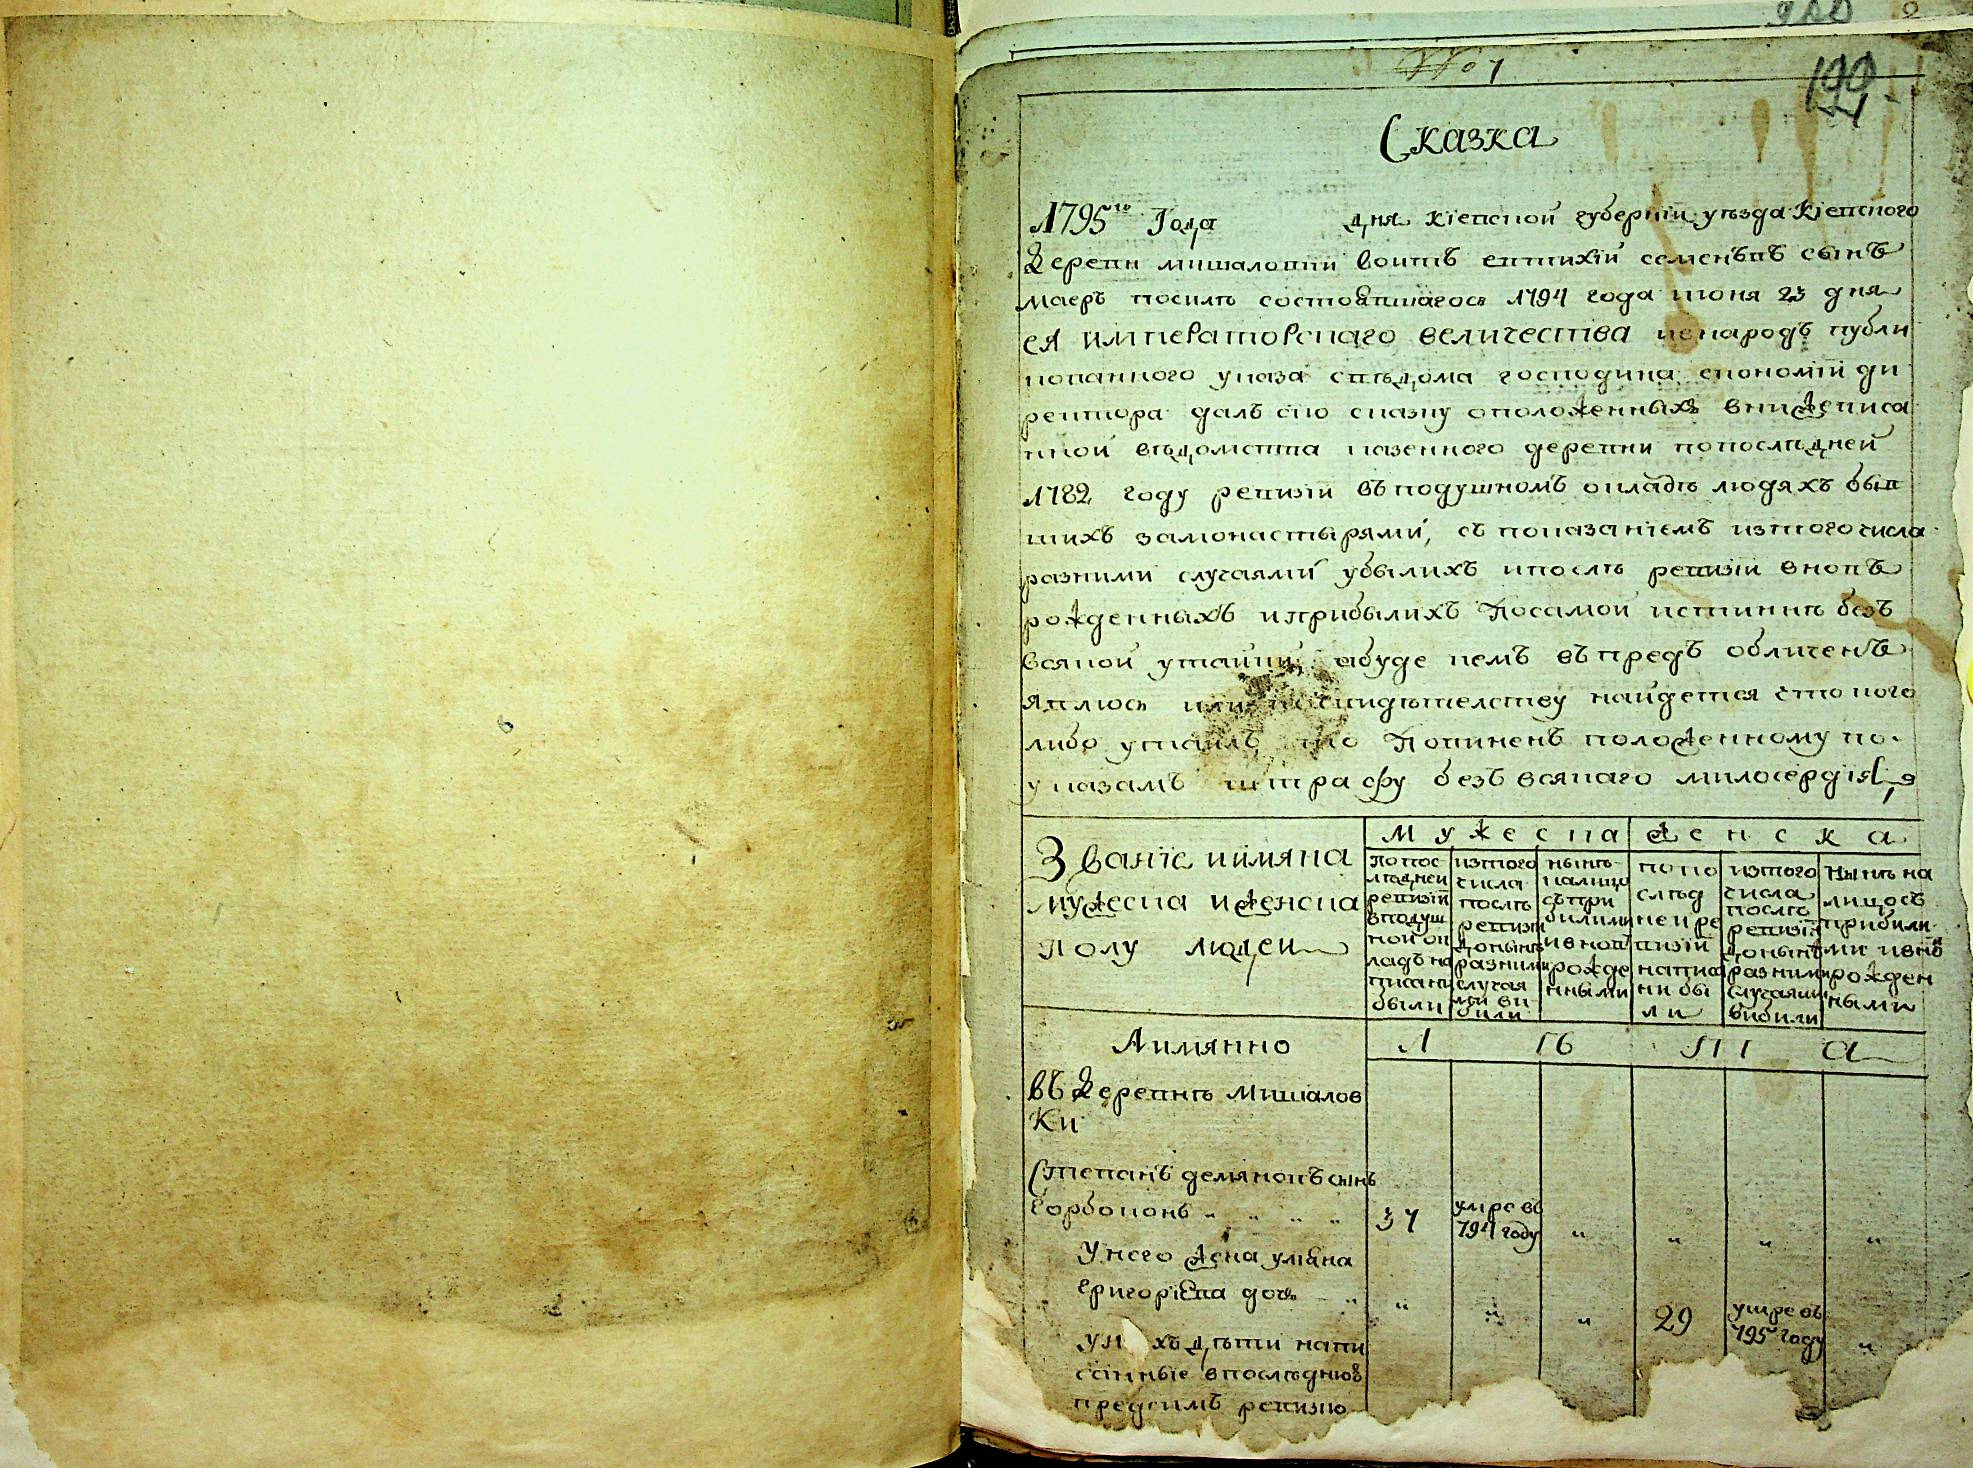 № 1
199
Сказка
1795го Года дня кіевской губерніи уезда Кіевского
Деревни мишаловки Воитъ евтихій семенъвъ сынъ
маеръ посилѣ состоявшагося 1794 года июня 23 дня
ея императорскаго величества невнародъ публи
кованного указа сведома господина економіи ди
ректора далъ сію сказку оположенныхъ внижеписа
нной вѣдомства казенного деревни попослѣдней
1782 году ревизіи въ подушномъ окладѣ людяхъ быв
шихъ замонастырями, съ показаніемъ изтого числа
разними случаями убылихъ ипослѣ ревизіи вновъ
рожденныхъ иприбылихъ Посамой истиннѣ безъ
всякой утайки, абуде кемъ въпредъ обличенъ
явлюсь или посвидѣтелству найдется что кого
либо утаилъ, то Повиненъ положенному по
указамъ штрафу безъ всякаго милосердія
Званіе иимяна мужеска иженска полу людей
Мужеска Женска
Попос лѣдней ревизіи вподуш ной ок ладъ на писани были
изтого числа послѣ ревизіи донынѣ разними случая ми ви били
нынѣ налицо съпри билими ивнов рожде нными
попо слѣд ней ре визіи написа ни бы ли
изтого числа послѣ ревизіи донынѣ разними случаями вибили
Нынѣ на лицосъ прибили ми ивно рожден ными
Аимянно Л ѣ т а
въ Деревнѣ Мишалов
Ки
Степанъ демяновъ сынъ
Горбоконь 37 умре въ 794 году
У него жена уліяна
григоріева дочь 29 умре въ 795 году
у нихъ дѣти напи
санные впослѣднюю
предсимъ ревизію